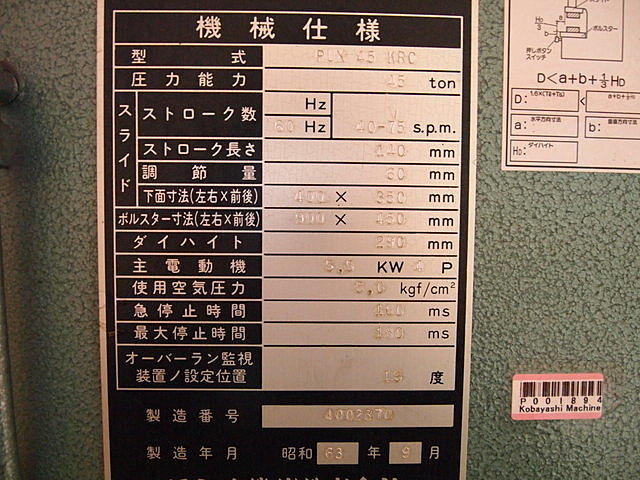 機械仕様
型式 PUX 45 KRC
圧力能力 45 ton
スライド
ストローク数 Hz
60 Hz 40-75 s.p.m.
ストローク長さ 140 mm
調節量 60 mm
下面寸法(左右×前後) 400 × 350 mm
ボルスター寸法(左右×前後) 900 × 450 mm
ダイハイト 250 mm
主電動機 5.5 KW 4 P
使用空気圧力 5.0 kgf/cm²
急停止時間 160 ms
最大停止時間 180 ms
オーバーラン監視
装置ノ設定位置 15 度
製造番号 4002370
製造年月 昭和 63 年 9 月
HD/3
b
a
D
ボルスター
押しボタン
スイッチ
D<a+b+⅓HD
D: 1.6×(Tℓ+Ts) < a+b+⅓HD
a: 水平方向寸法
b: 垂直方向寸法
HD: ダイハイト
P001894
Kobayashi Machine